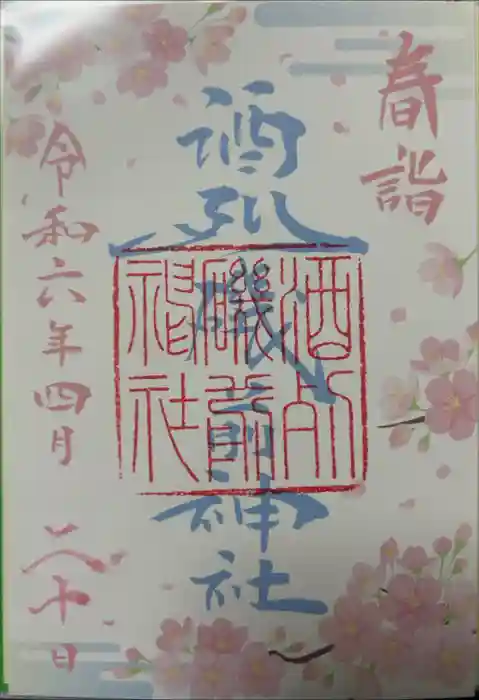 春詣
酒列磯前神社
酒列
磯前
神社
令和六年四月二十日